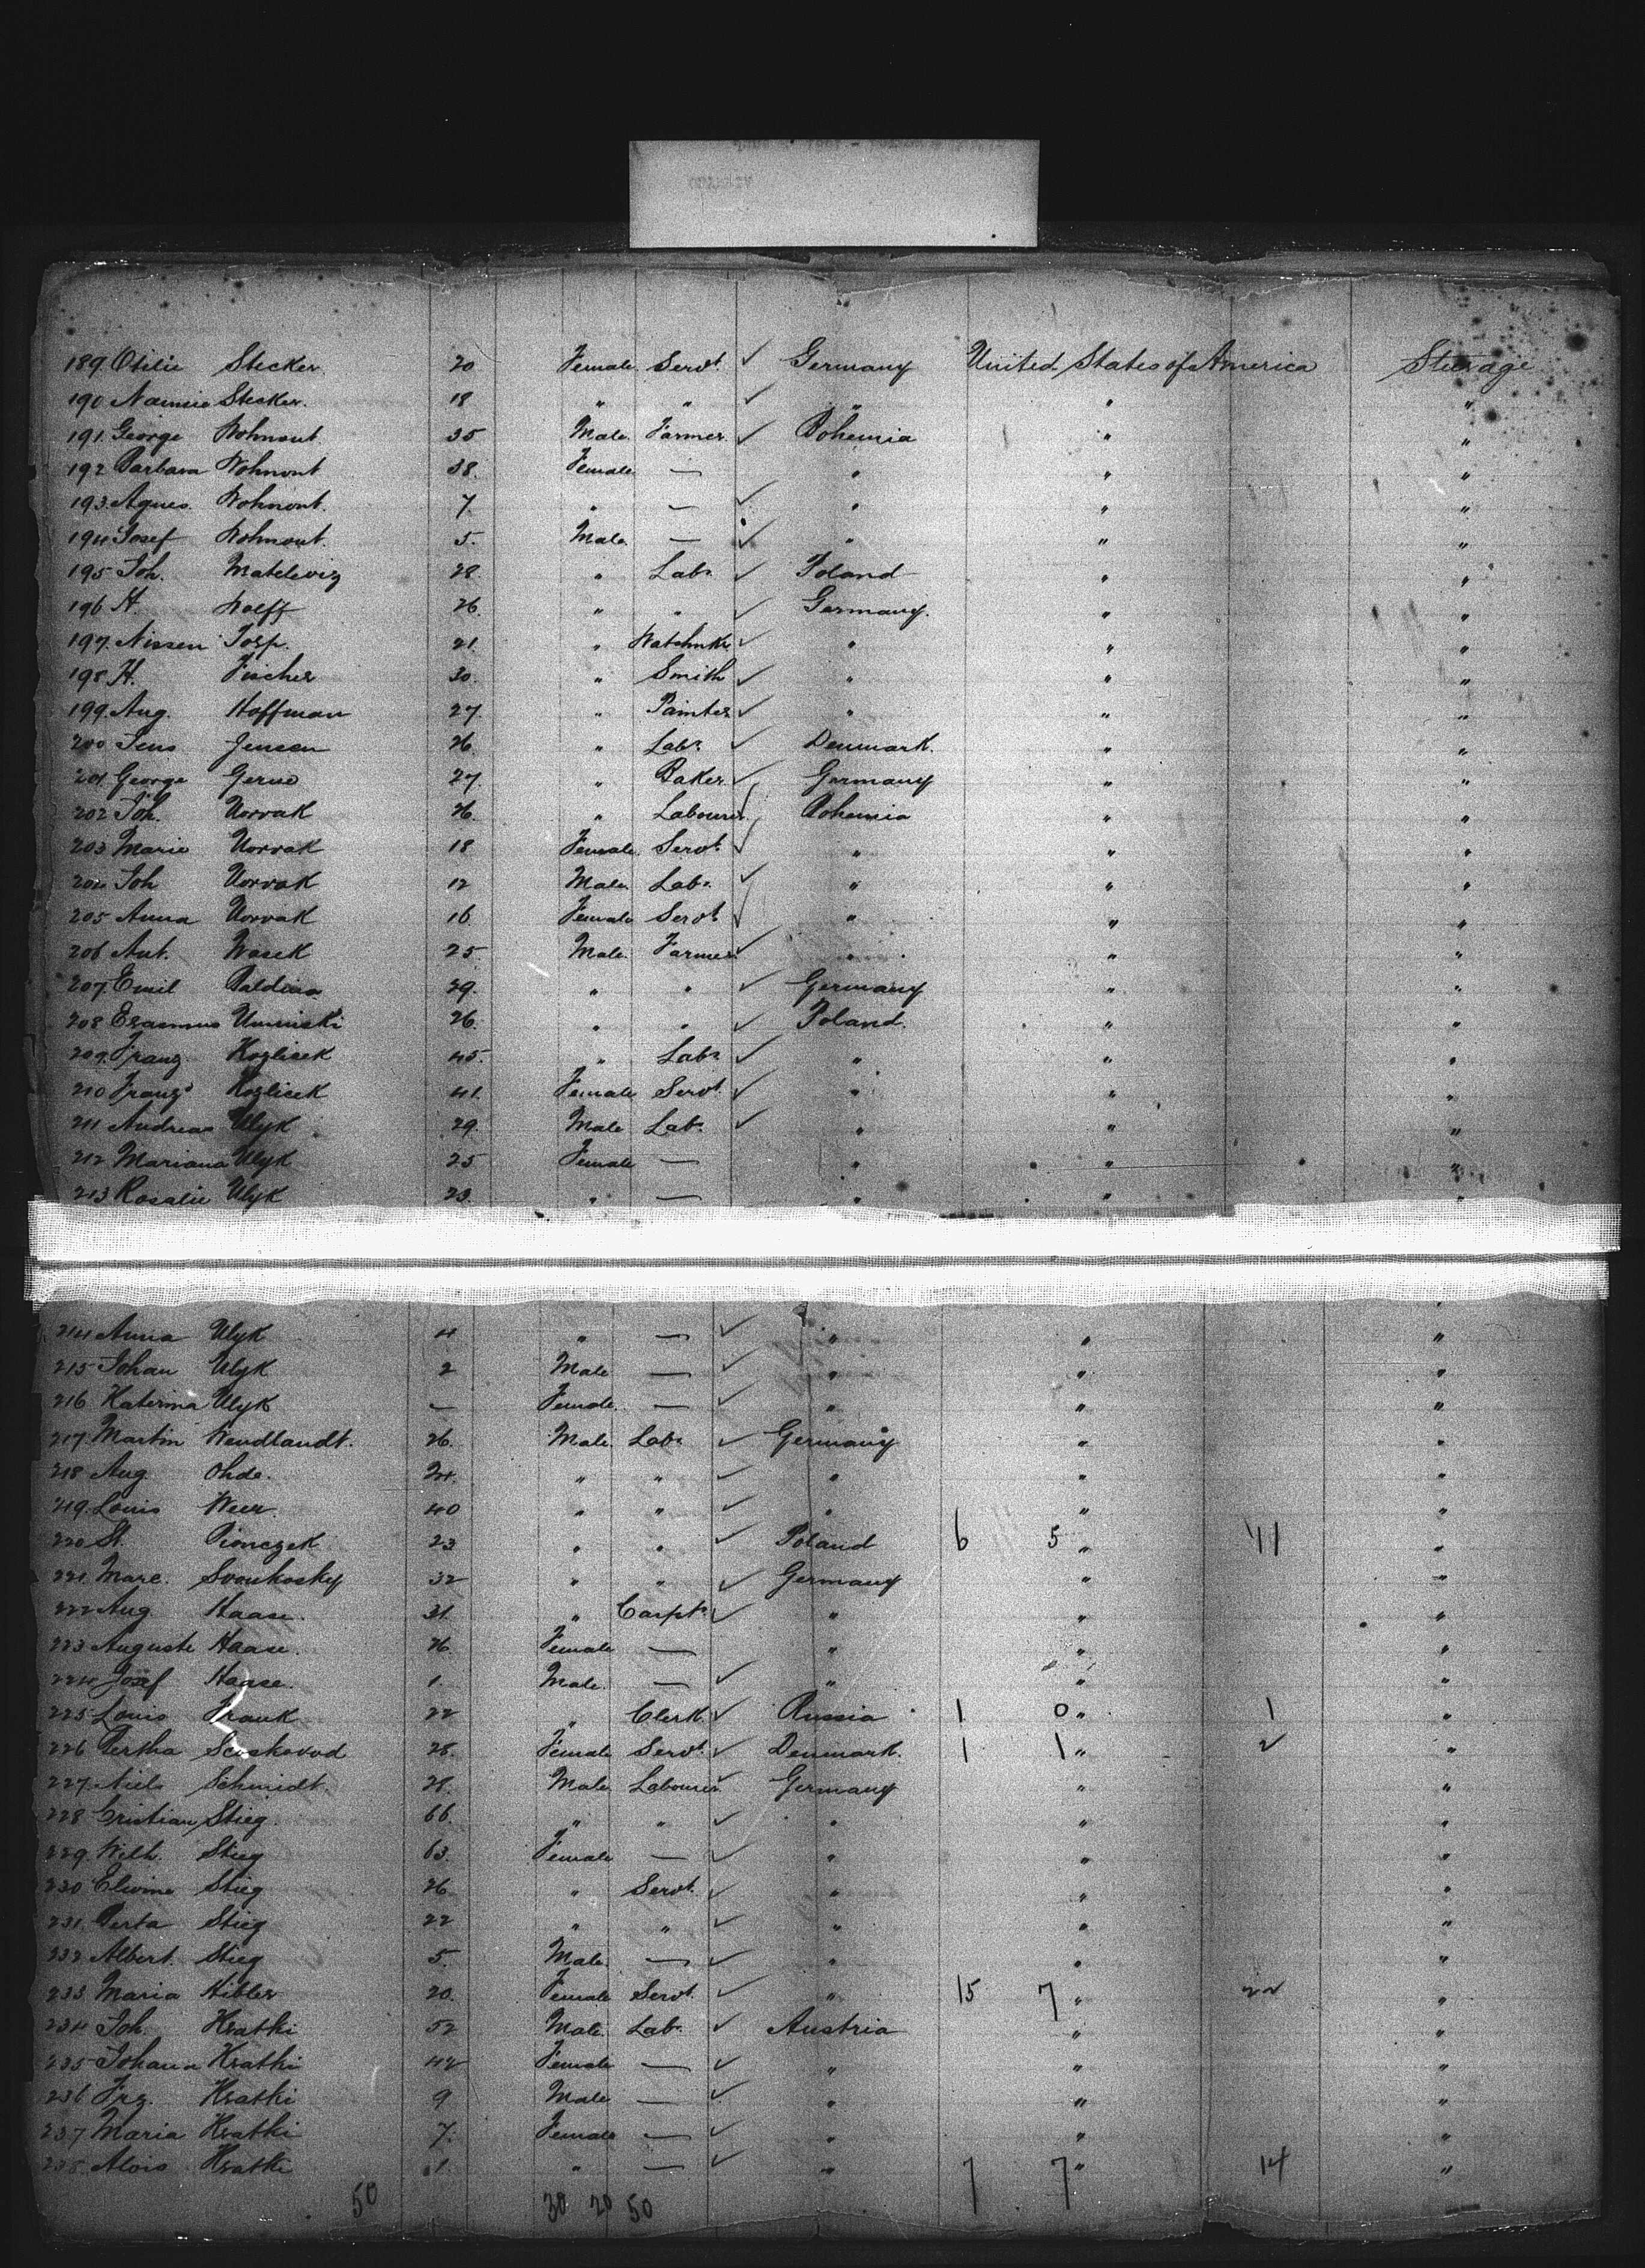 189 Otilie Stecker 20 Female Servt. ✓ Germany United States of America Steerage
190 Nannie Stecker. 18 " " ✓ " " "
191. George Wohnout 35 Male. Farmer ✓ Bohemia " "
192 Barbara Wohnout 38. Female — " " "
193. Agnes. Wohnout. 7. " — ✓ " " "
194 Josef Wohnout. 5. Male. — ✓ " " "
195 Joh. Mateleviz 28. " Labr ✓ Poland " "
196 H. Wolff 26. " " ✓ Germany. " "
197. Nissen Josp. 21. " Watchmkr ✓ " " "
198 H. Fischer 30. " Smith ✓ " " "
199. Aug. Hoffman 27. " Painter ✓ " " "
200 Jens Jensen 26. " Labr ✓ Denmark. " "
201 George 27. " Baker ✓ Germany " "
202 Joh. Worvak 26. " Labourer ✓ Bohemia " "
203 Marie Worvak 18 Female Servt. ✓ " " "
204 Joh Worvak 12 Male. Labr ✓ " " "
205 Anna Worvak 16. Female Servt ✓ " " "
206 Ant. Wasek 25. Male. Farmer ✓ " " "
207. Emil 29. " " ✓ Germany " "
208 Erasmus Uminski 26. " " ✓ Poland. " "
209. Franz Kozlicek 45. " Labr ✓ " " "
210 Franzs Kozlicek 41. Female Servt. ✓ " " "
211 Andreas Ulyk 29. Male Labr ✓ " " "
212 Mariana Ulyk 25 Female — " " "
213 Rosalie Ulyk 23. " — " " "
214 Anna Ulyk 4 " — ✓ " " "
215 Johan Ulyk 2 Male — ✓ " " "
216 Katerina Ulyk — Female. — ✓ " " "
217. Martin Wendlandt. 26. Male. Labr ✓ Germany " "
218 Aug. Ohde. 24. " " ✓ " " "
219. Louis Weer. 40 " " ✓ " " "
220 St. Pionczek 23 " " ✓ Poland 6 5 " 11 "
221. Marc. Svonkosky 32 " " ✓ Germany " "
222 Aug. Haase. 31. " Carptr ✓ " " "
223 Auguste Haase. 26. Female — " " "
224 Josef Haase. 1. Male. — ✓ " " "
225 Louis Frank 22 " Clerk ✓ Russia 1 0 " 1 "
226 Bertha 28. Female Servt. ✓ Denmark. 1 1 " 2 "
227 Niels Schmidt. 28. Male Labourer ✓ Germany " "
228 Cristian Stieg. 66. " " ✓ " " "
229. Wilh. Stieg 63. Female — ✓ " " "
230 Elwine Stieg 26. " Servt. ✓ " " "
231. Berta Stieg 22 " " ✓ " " "
232 Albert. Stieg 5. Male. — ✓ " " "
233. Maria Hibler 20. Female Servt. ✓ " 15 7 " 22 "
234 Joh. Kratki 52 Male. Labr ✓ Austria " "
235 Johana Kratki 42 Female — ✓ " " "
236 Frz. Kratki 9 Male — ✓ " " "
237 Maria Kratki 7. Female — ✓ " " "
238. Alois Kratki 1. " — ✓ " 7 7 " 14 "
50 30 20 50